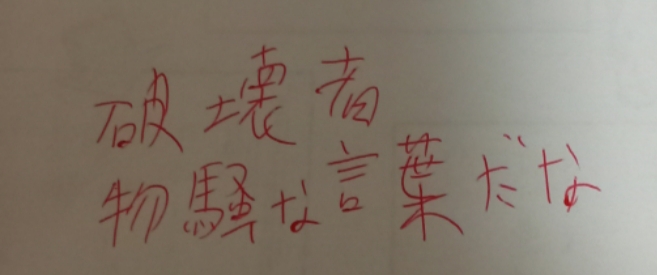 破壊者
物騒な言葉だな